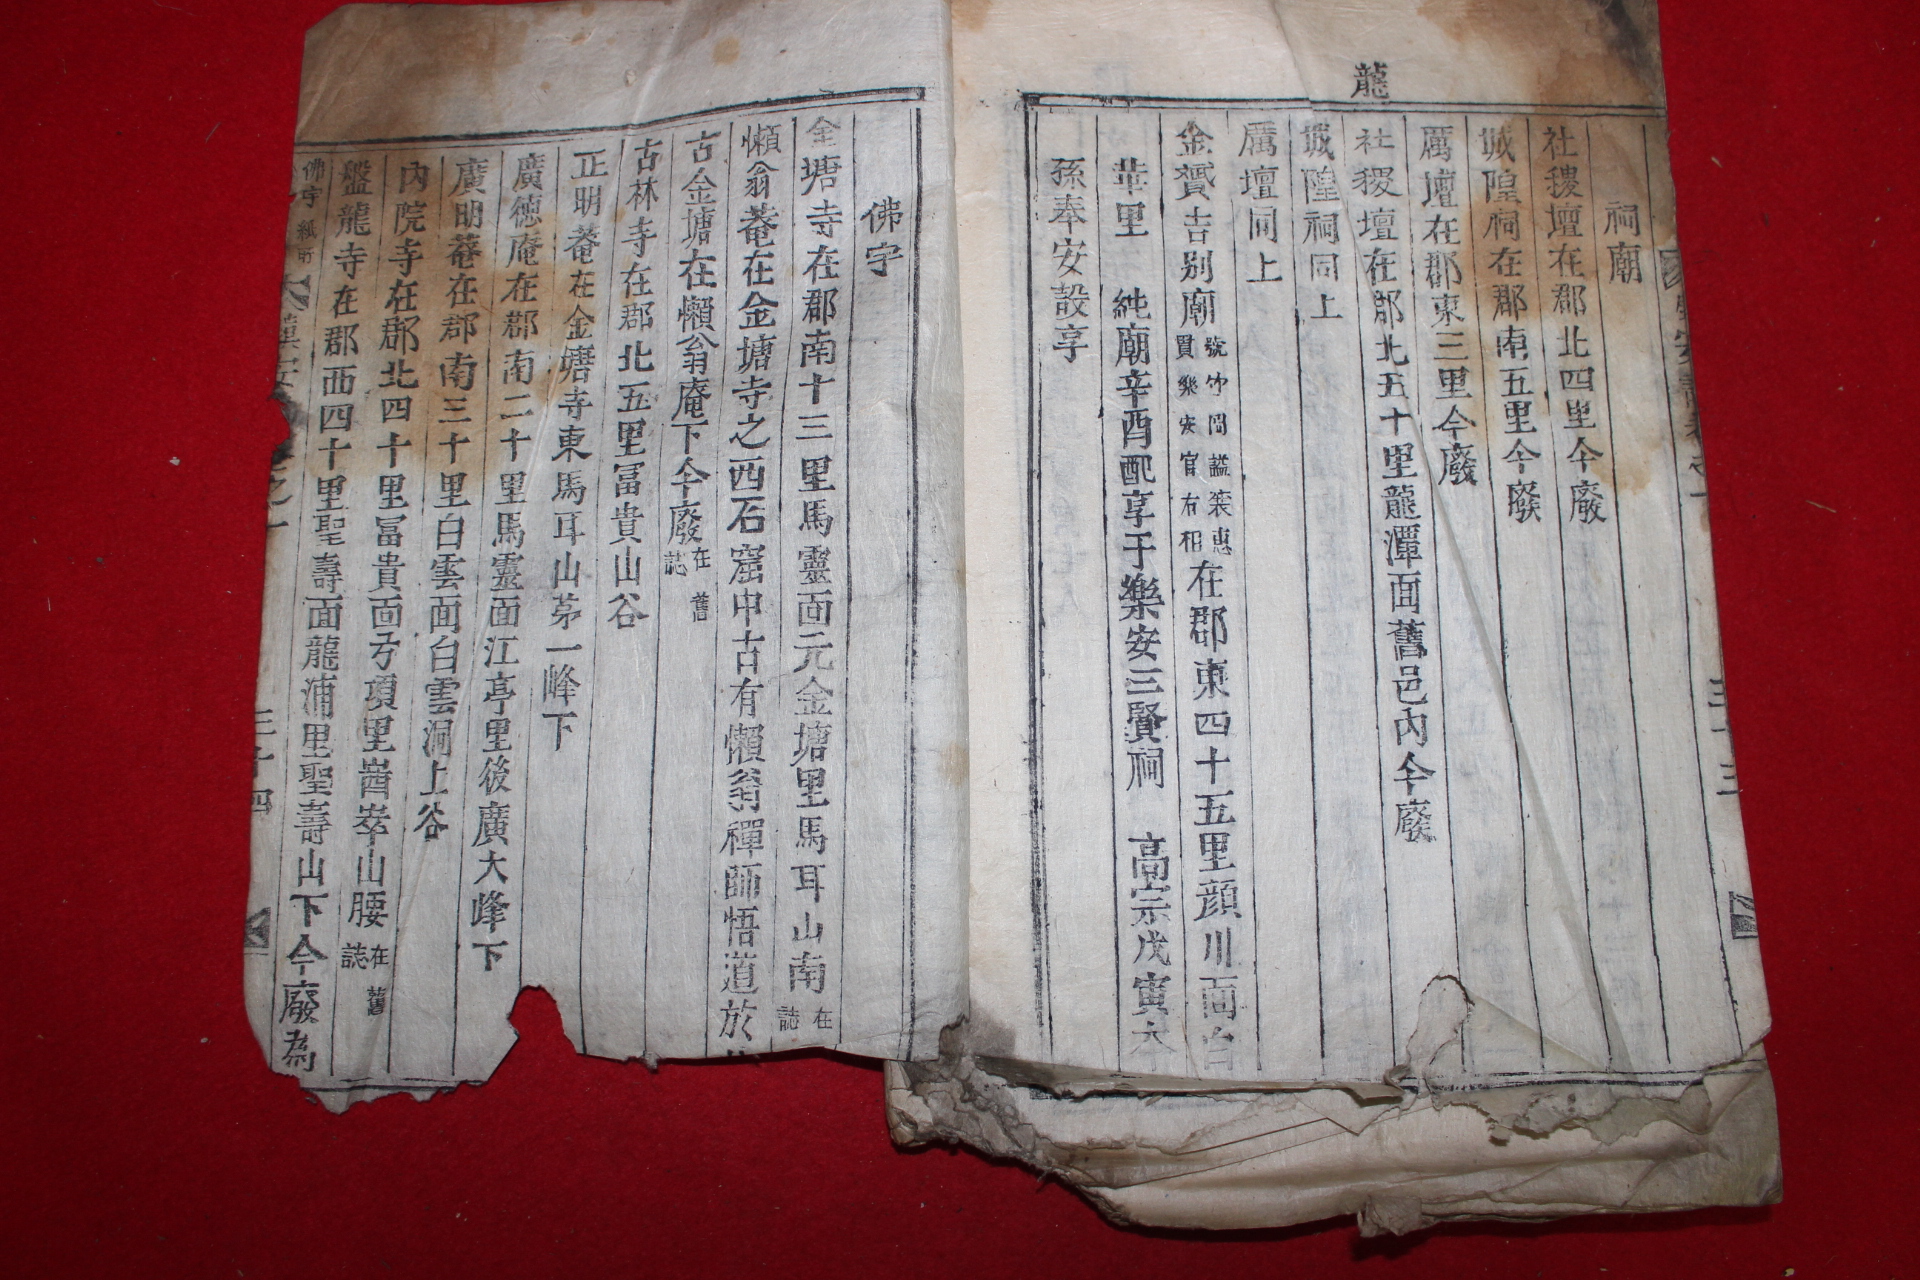 龍
祠廟
社稷壇在郡北四里今廢
城隍祠在郡南五里今廢
厲壇在郡東三里今廢
社稷壇在郡北五十里龍潭面舊邑內今廢
城隍祠同上
厲壇同上
金贇吉別廟號竹岡謚裝惠貫樂安官右相在郡東四十五里顔川面白
華里 純廟辛酉配享于樂安三賢祠 高宗戊寅本
孫奉安設享
佛宇
金塘寺在郡南十三里馬靈面元金塘里馬耳山南在舊誌
懶翁菴在金塘寺之西石窟中古有懶翁禪師悟道於
古金塘在懶翁庵下今廢在舊誌
古林寺在郡北五里冨貴山谷
正明菴在金塘寺東馬耳山茅一峰下
廣德庵在郡南二十里馬靈面江亭里後廣大峰下
廣明菴在郡南三十里白雲面白雲洞上谷
內院寺在郡北四十里冨貴面弓項里酋崒山腰在舊誌
盤龍寺在郡西四十里聖壽面龍浦里聖壽山下今廢為